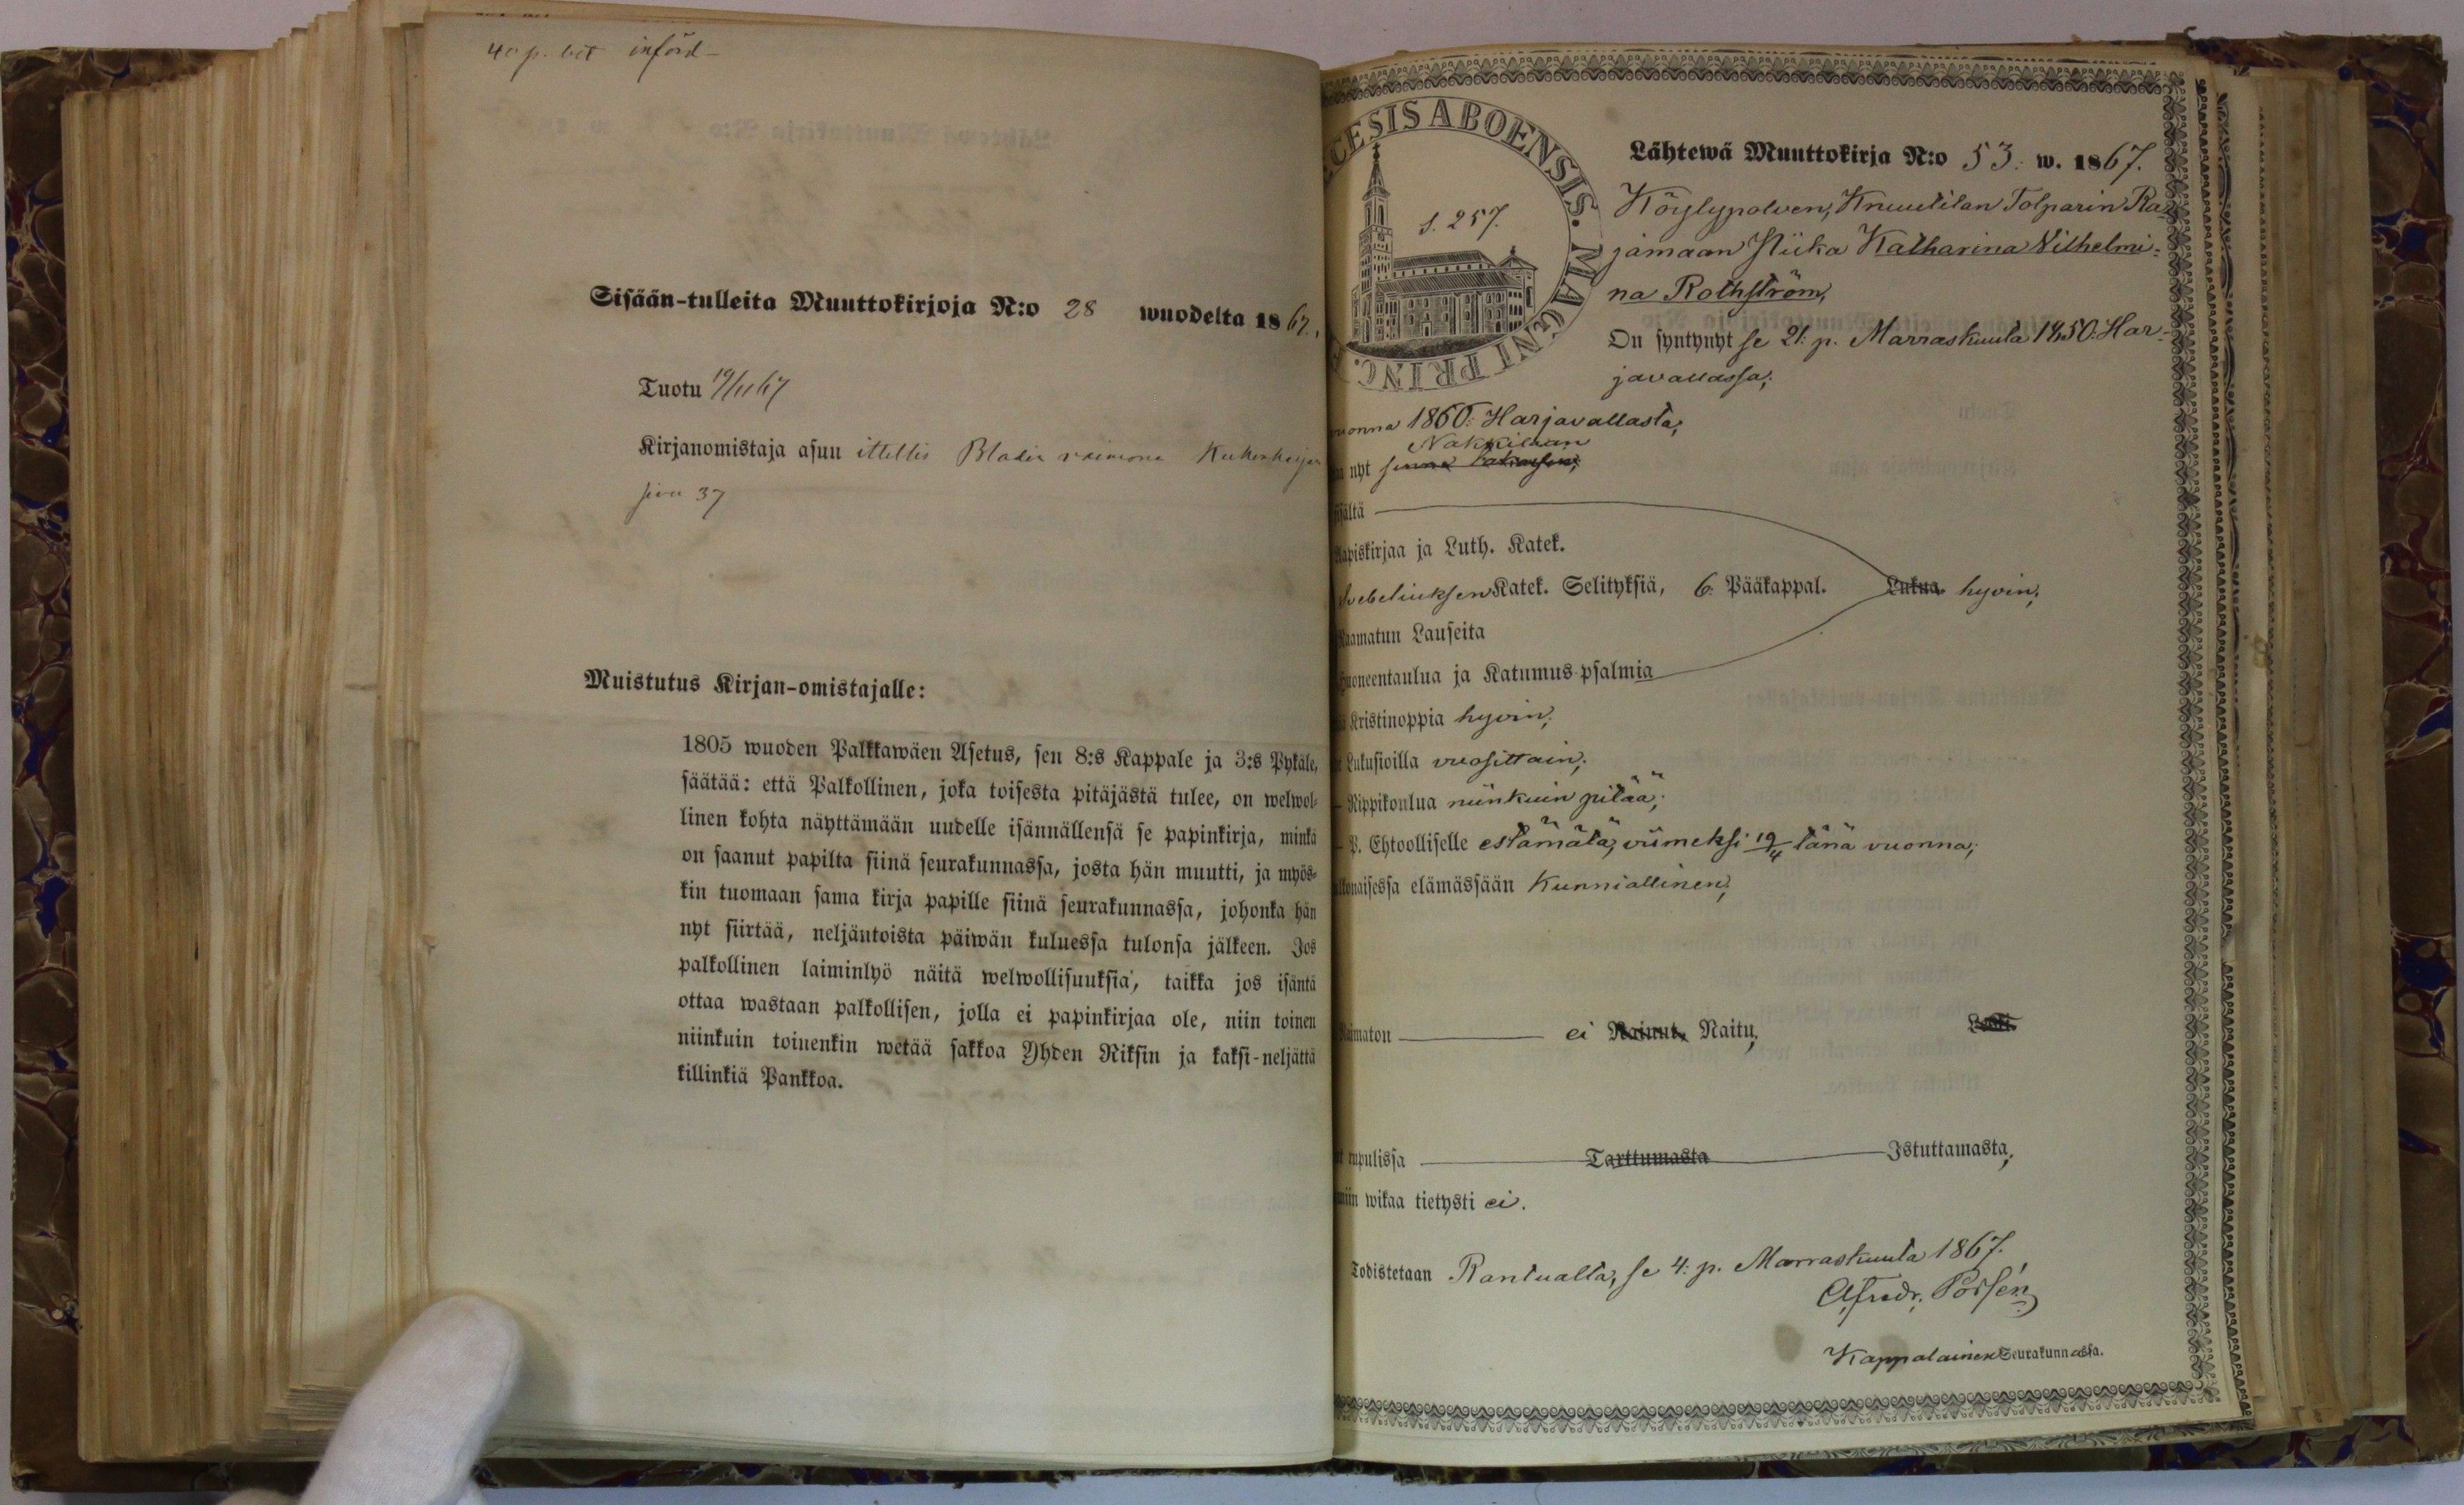 40 p. bet införd
Sisään-tulleita Muuttokirjoja N:o 28 wuodelta 1867.
Tuotu 19/11 67
Kirjanomistaja asuu ittellis
sivu 37
Muistutus Kirjan-omistajalle:
1805 wuoden Palkkawäen Asetus, sen 8:s Kappale ja 3:s Pykäle,
säätää: että Palkollinen, joka toisesta pitäjästä tulee, on welwol-
linen kohta näyttämään uudelle isännällensä se papinkirja, minkä
on saanut papilta siinä seurakunnassa, josta hän muutti, ja myös-
kin tuomaan sama kirja papille siinä seurakunnassa, johonka hän
nyt siirtää, neljäntoista päiwän kuluessa tulonsa jälkeen. Jos
palkollinen laiminlyö näitä welwollisuuksia, taikka jos isäntä
ottaa wastaan palkollisen, jolla ei papinkirjaa ole, niin toinen
niinkuin toinenkin wetää sakkoa Yhden Riksin ja kaksi-neljättä
killinkiä Pankkoa.
CESIS ABOENSIS. MAGNI PRINC.
s. 257.
Lähtewä Muuttokirja N:o 53. w. 1867.
Köylypolven, Knuutilan Tolparin Ra-
jamaan Piika Katharina Vilhelmi-
na Rothström,
On syntynyt se 21. p. Marraskuuta 1850. Har-
javallassa;
vuonna 1860. Harjavallasta,
Nakkilaan
nyt
ältä
apiskirjaa ja Luth. Katek.
Svebeliuksen Katek. Selityksiä, 6. Pääkappal. Lukua hyvin;
Raamatun Lauseita
Huoneentaulua ja Katumus-psalmia
Kristinoppia hyvin;
Lukusioilla vuosittain;
Rippikoulua niinkuin pitää;
P. Ehtoolliselle estämätä, viimeksi 19/4 tänä vuonna;
lkonaisessa elämässään Kunniallinen;
Naimaton ei Nainut, Naitu, Leski
rupulissa Tarttumasta Istuttamasta,
miin wikaa tietysti ei.
Todistetaan Rantualta, se 4. p. Marraskuuta 1867.
Kappalainen Seurakunnassa.